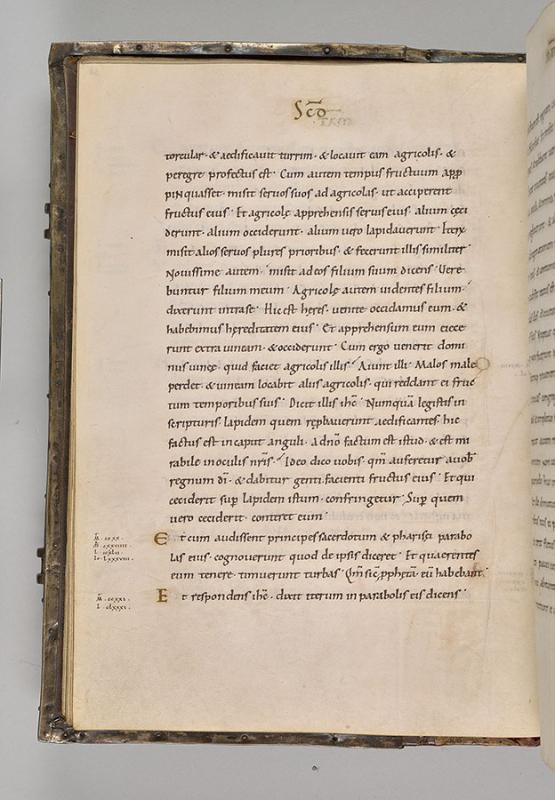 Scđo
torcular· & aedificauit turrim· & locauit eam agricolis· &
peregre profectus est· Cum autem tempus fructuum app
pinquasset· misit seruos suos ad agricolas· ut acciperent
fructus eius· Et agricolę apprehensis seruis eius· alium ceci
derunt· alium occiderunt· alium uero lapidauerunt· Iterū
misit alios seruos plures prioribus· & fecerunt illis similiter·
Nouissime autem· misit ad eos filium suum dicens· Vere
buntur filium meum· Agricolę autem uidentes filium·
dixerunt intra se· Hic est heres· uenite occidamus eum· &
habebimus hereditatem eius· Et apprehensum eum eiece
runt extra uineam· & occiderunt· Cum ergo uenerit domi
nus uineę· quid faciet agricolis illis· Aiunt illi· Malos male
perdet· & uineam locabit aliis agricolis· qui reddant ei fruc
tum temporibus suis· Dicit illis ihc̄· Numquā legistis in
scripturis· lapidem quem reprobauerunt aedificantes· hic
factus est in caput anguli· a dn̄o factum est istud· & est mi
rabile in oculis nr̄is· Ideo dico uobis· qm̄ auferetur a uob
regnum dī· & dabitur genti facienti fructus eius· Et qui
ceciderit sup lapidem istum· confringetur· Sup quem
uero ceciderit· conteret eum·
Et cum audissent principes sacerdotum & pharisei parabo
las eius· cognouerunt quod de ipsis diceret· Et quaerentes
eum tenere· timuerunt turbas· Qm̄ sic pphetā eū habebant·
Et respondens ihc̄· dixit iterum in parabolis eis dicens·